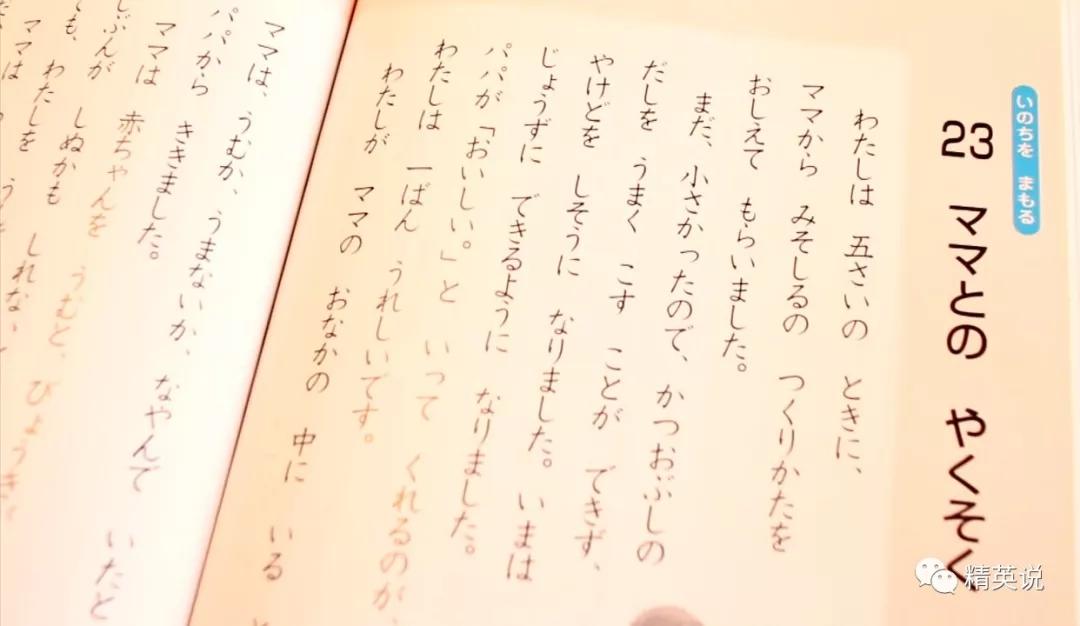 いのちを まもる
23 ママとの やくそく
わたしは 五さいの ときに、
ママから みそしるの つくりかたを
おしえて もらいました。
まだ、小さかったので、かつおぶしの
だしを うまく こす ことが できず、
やけどを しそうに なりました。いまは
じょうずに できるように なりました。
パパが「おいしい。」と いって くれるのが、
わたしは 一ばん うれしいです。
わたしが ママの おなかの 中に いる
ママは、うむか、うまないか、なやんで いたと
パパから ききました。
ママは 赤ちゃんを うむと、びょうきが
しぬかも しれない
わたしを
ママは
精英说